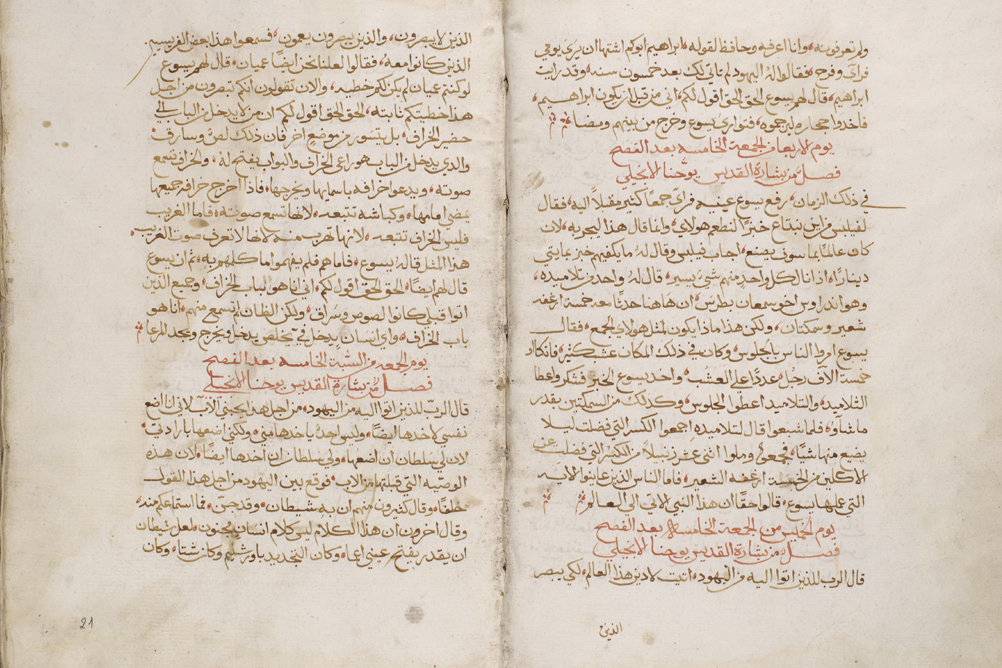 ولم تعرفونه وانا اعرفه وحافظ لقوله ابراهيم ابوكم اشتها ان يرى يومي
فراى وفرح فقالوا له اليهود لم تاتي لك بعد خمسون سنه وقد رايت
ابراهيم قال لهم يسوع الحق الحق اقول لكم اني من قبل ان يكون ابراهيم
فاخدوا حجاره ليرجموه فتوارى يسوع وخرج من بينهم ومضا
يوم الاربعا من الجمعة الخامسه بعد الفصح
فصل من بشارة القديس يوحنا الانجيلي
في ذلك الزمان رفع يسوع عينيه فراى جمعًا كثير مقبلاً اليه فقال
لفيلبس من اين نبتاع خبزًا لنطعم هولاي وانما قال هذا ليجربه لان
كان عالمًا بما سوف يصنع اجاب فيلبس وقال له ما يكفيهم خبز بمايتي
دينارًا اذا نال كل واحد منهم شي يسير قال له واحد من تلاميده
وهو اندراوس اخو سمعان بطرس ان هاهنا حدثًا معه خمسة ارغفه
شعير وسمكتان ولكن هذا ماذا يكون لمثل هولاي الجمع فقال
يسوع امروا الناس بالجلوس وكان في ذلك المكان عشب كثير فاتكاا
خمسة الاف رجل عددًا على العشب واخد يسوع الخبز فشكر واعطا
التلاميد والتلاميد اعطوا الجلوس وكدلك من السمكتين بقدر
ما شاوا فلما شبعوا قال لتلاميده اجمعوا الكسر التي فضلت ليلا
يضع منها شيًا فجمعوا وملوا اثنى عشر زنبيلاً من الكسر التي فضلت عن
الاكلين من الخمسة ارغفه الشعير فاما الناس الذين عاينوا الايه
التي عملها يسوع قالوا حقًا ان هذا النبي الاتي الى العالم
يوم الخميس من الجمعة الخامسه بعد الفصح
فصل من بشارة القديس يوحنا الانجيلي
قال الرب للذين اتوا اليه من اليهود اتيت لادين هذا العالم لكي يبصر
الذين
الذين لا يبصرون والذين يبصرون يعمون فسمعوا هذا بعض الفريسيين
الذين كانوا معه فقالوا لعلنا نحن ايضًا عميان قال لهم يسوع
لو كنتم عميان لم يكن لكم خطيه والان تقولون انكم تبصرون من اجل
هذا خطيتكم ثابته الحق الحق اقول لكم ان من لا يدخل من الباب الى
حضير الخراف بل يتسور من موضع اخر فان ذلك لص وسارق
والدي يدخل من الباب هو راعي الخراف والبواب يفتح له والخراف تسمع
صوته ويدعوا خرافه باسمايها ويخرجها فاذا اخرج خرافه جميعها
يمضي امامها وكباشه تتبعه لانها تسمع صوته فاما الغريب
فليس الخراف تتبعه لانها تهرب منه لانها لا تعرف صوت الغريب
هذا المثل قاله يسوع فاما هم فلم يفهموا ما كلمهم به ثم ان يسوع
قال لهم ايضًا الحق الحق اقول لكم اني انا هو الباب الخراف وجميع الدين
اتوا قبلي كانوا لصوص وسراق ولكن الظان لم تسمع منهم انا هو
باب الخراف واي انسان يدخل في يخلص يدخل ويخرج ويجد المرعا
يوم الجمعه من السبة الخامسه بعد الفصح
فصل من بشارة القديس يوحنا الانجيلي
قال الرب للذين اتوا اليه من اليهود من اجل هدا يحبني الاب لاني اضع
نفسي لاخدها ايضًا وليس احدًا ياخدها مني ولكني اضعها بارادتي
لان لي سلطان ان اضعها ولي سلطان ان اخدها ايضًا لان هده
الوصيه التي قبلتها من الاب فوقع بين اليهود من اجل هدا القول
خلفًا وقال كثيرون منهم ان به شيطان وقد جن فما استماعكم منه
وقال اخرون ان هدا الكلام ليس كلام انسان مجنون لعل شيطان
ان يقدر يفتح عيني اعما وكان التجديد باورشليم وكان شتا وكان
21